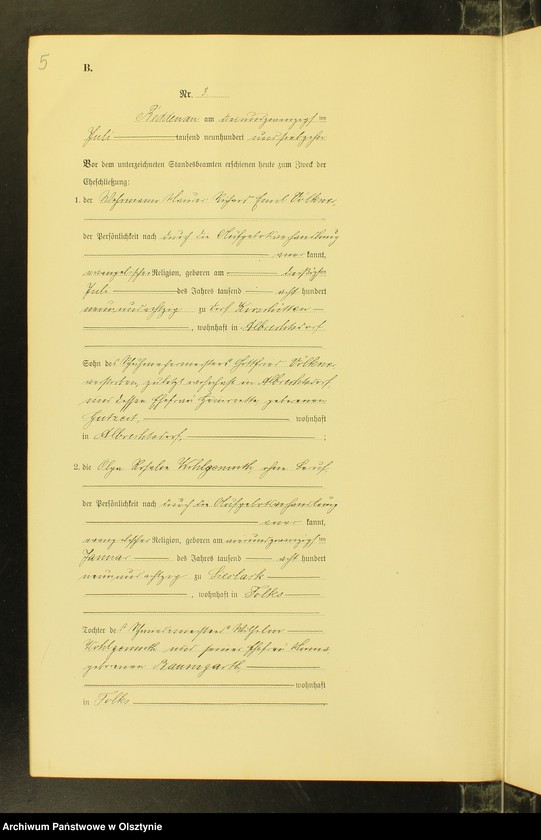 5
B.
Nr. 3
Redlenau am neunundzwanzigsten
Juli tausend neunhundert und fünfzehn
Vor dem unterzeichneten Standesbeamten erschienen heute zum Zweck der
Eheschließung:
1. der Wehrmann Richard Emil Volkner,
der Persönlichkeit nach durch die Aufgebotsverhandlung
anerkannt,
evangelischer Religion, geboren am dreißigsten
Juli des Jahres tausend acht hundert
neunundachtzig zu Dorf
, wohnhaft in Albrechtsdorf
Sohn des Gottfried Volkner
verstorben, zuletzt wohnhaft in Albrechtsdorf
und dessen Ehefrau Henriette geborenen
Gutzeit, wohnhaft
in Albrechtsdorf ;
2. die Olga Rosalie Wohlgemuth, ohne Beruf,
der Persönlichkeit nach durch die Aufgebotsverhandlung
anerkannt,
evangelischer Religion, geboren am
Januar des Jahres tausend acht hundert
neunundachtzig zu
, wohnhaft in Tolks
Tochter des Wilhelm
Wohlgemuth und seiner Ehefrau
geborenen Baumgarth,
wohnhaft
in Tolks
Archiwum Państwowe w Olsztynie